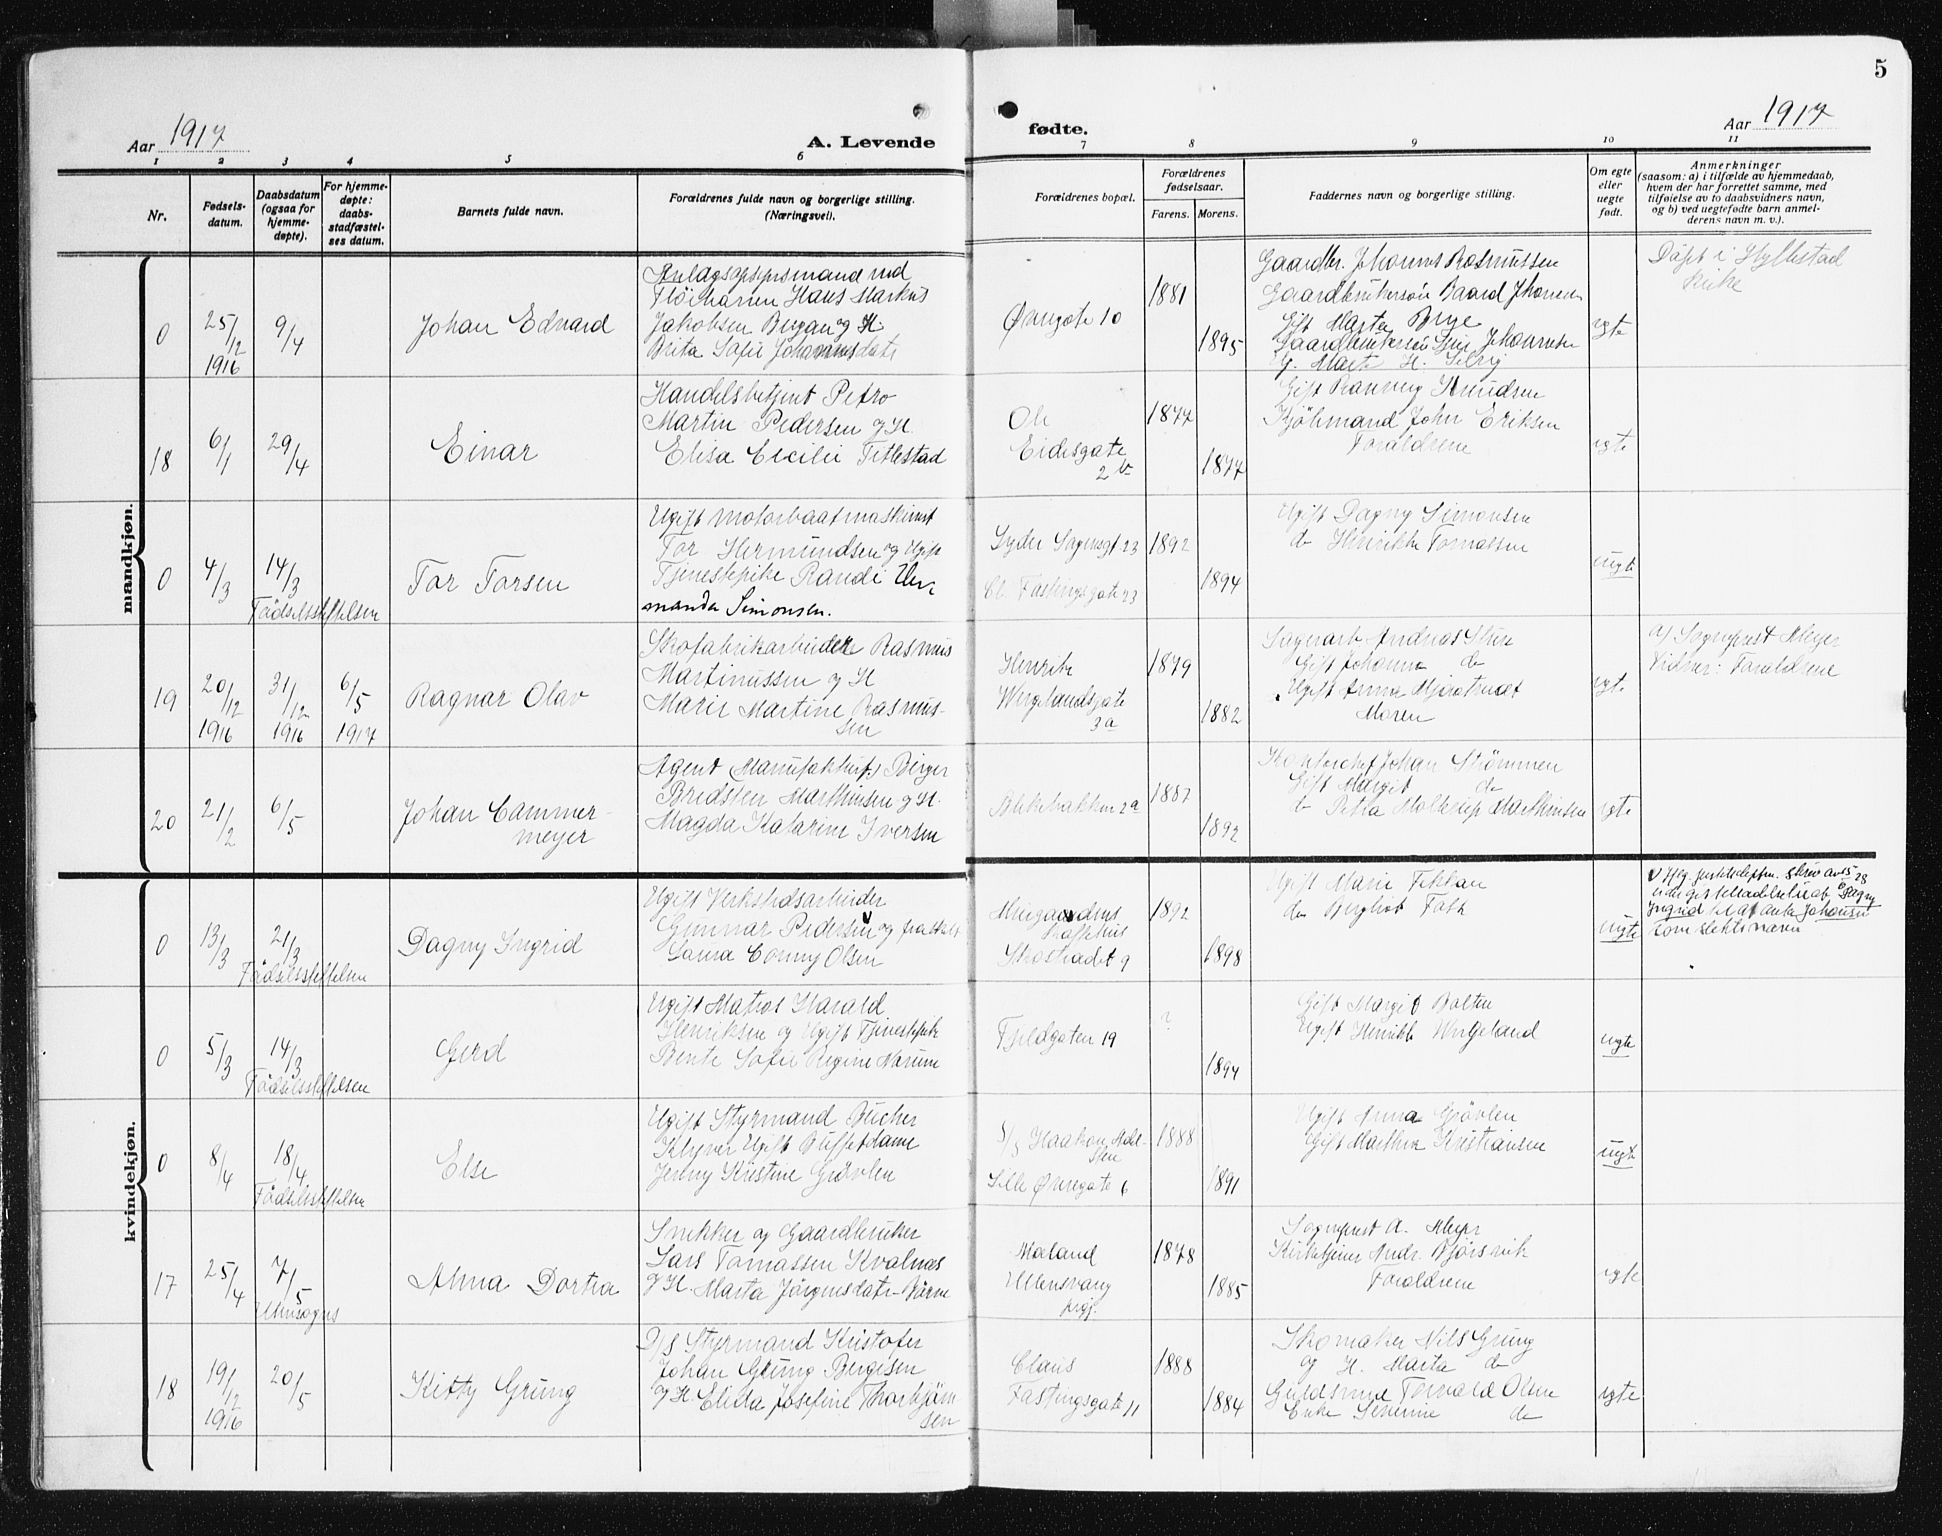 5
Aar 1917
A. Levende
fødte.
Aar 1917
1 2 3 4 5 6 7 8 9 10 11
Nr.
Fødsels-
datum.
Daabsdatum
(ogsaa for
hjemme-
døpte).
For hjemme-
døpte:
daabs-
stadfæstel-
ses datum.
Barnets fulde navn.
Forældrenes fulde navn og borgerlige stilling.
(Næringsvei).
Forældrenes bopæl.
Forældrenes
fødselsaar.
Farens. Morens.
Faddernes navn og borgerlige stilling.
Om egte
eller
uegte
født.
Anmerkninger
(saasom: a) i tilfælde av hjemmedaab,
hvem der har forrettet samme, med
tilføielse av to daabsvidners navn,
og b) ved uegtefødte barn anmel-
derens navn m. v.).
mandkjøn.
0
25/12
1916
9/4
Johan Edvard
Fløibanen Hans Markus
Jakobsen Bergan og H.
Brita Sofie Johannesdatr
Øvregate 10
1881
1895
Gaardbr. Johannes Rasmussen
Gaardbrukersøn Baard Johannes
Gift Marta Brye
egte
Døpt i Hyllestad
kirke
18
6/1
29/4
Einar
Handelsbetjent Petro
Martin Pedersen og H.
Elisa Cecilie Titlestad
Ole
Eidesgate
2 b
1877
1877
Gift Rannveig Knudsen
Kjøbmand John Eriksen
Forældrene
egte
0
4/3
14/3
Fødselsstiftelsen
Tor Torsen
Ugift Motorbaatmaskinist
Tor Hermundsen og Ugift
Tjenestepike Randi Her-
manda Simonsen.
Lyder Sagensgt 23
Cl. Fastingsgate 23
1892
1894
Ugift Dagny Simonsen
do Henrikke Tomassen
uegte
19
20/12
1916
31/12
1916
6/5
1917
Ragnar Olav
Skofabrikarbeider Rasmus
Martinussen og H
Marie Martine Rasmus-
sen
Henrik
Wergelandsgate
3a
1879
1882
Sagerarb Andreas Sture
Gift Johanna do
Ugift Anna
Moren
egte
af Sogneprest Meyer
Vidner: Forældrene
20
21/2
6/5
Johan Cammer-
meyer
Agent (Manufaktur) Berger
Bredsten Marthinsen og H.
Magda Katarine Iversen
Blekebakken 2a
1887
1892
Kontorchef Johan Strømmen
Gift Margit do
do Petra Moltrup Marthinsen
egte
kvindekjøn.
0
13/3
21/3
Fødselsstiftelsen
Dagny Ingrid
Ugift Verkstedsarbeider
Gunnar Pedersen og fraskilt
Laura Conny Olsen
Skostrædet 9
1892
1898
Ugift Marie Feklan
do Bergliot Falk
uegte
Ingrid
Johansen
som slektsnavn
0
5/3
14/3
Fødselsstiftelsen
Gerd
Ugift Matros Harald
Henriksen og Ugift Tjenestepike
Bente Sofie Regine Narum
Fjeldgaten 19
?
1894
Gift Margit Bolten
Ugift Henrikke Wergeland
uegte
0
8/4
18/4
Fødselsstiftelsen
Else
Ugift Styrmand Bucher
Klyver Ugift Buffetdame
Jenny Kristine Grøvlen
S/S Haakon Adal-
sten
Lille Øvregate 6
1888
1891
Ugift Anna Grøvlen
Gift Marthea Kristiansen
uegte
17
25/4
7/5
Utensogns
Anna Dortea
Snekker og Gaardbruker
Lars Tomassen Kvalnes
og H. Marta Jørgensdatr Børve
Næland
Ullensvang
prgj.
1878
1885
Sogneprest A. Meyer
Kirketjener Andr. Bjørsvik
Forældrene
egte
18
19/12
1916
20/5
Kitty Grung
D/S Styrmand Kristofer
Johan Grung Bergesen
og H. Elida Josefine Thorbjørn-
sen
Claus
Fastingsgate 11
1888
1884
Skomaker Nils Grung
og H. Marta do
Guldsmed Torvald Olsen
Enke Severine do
egte